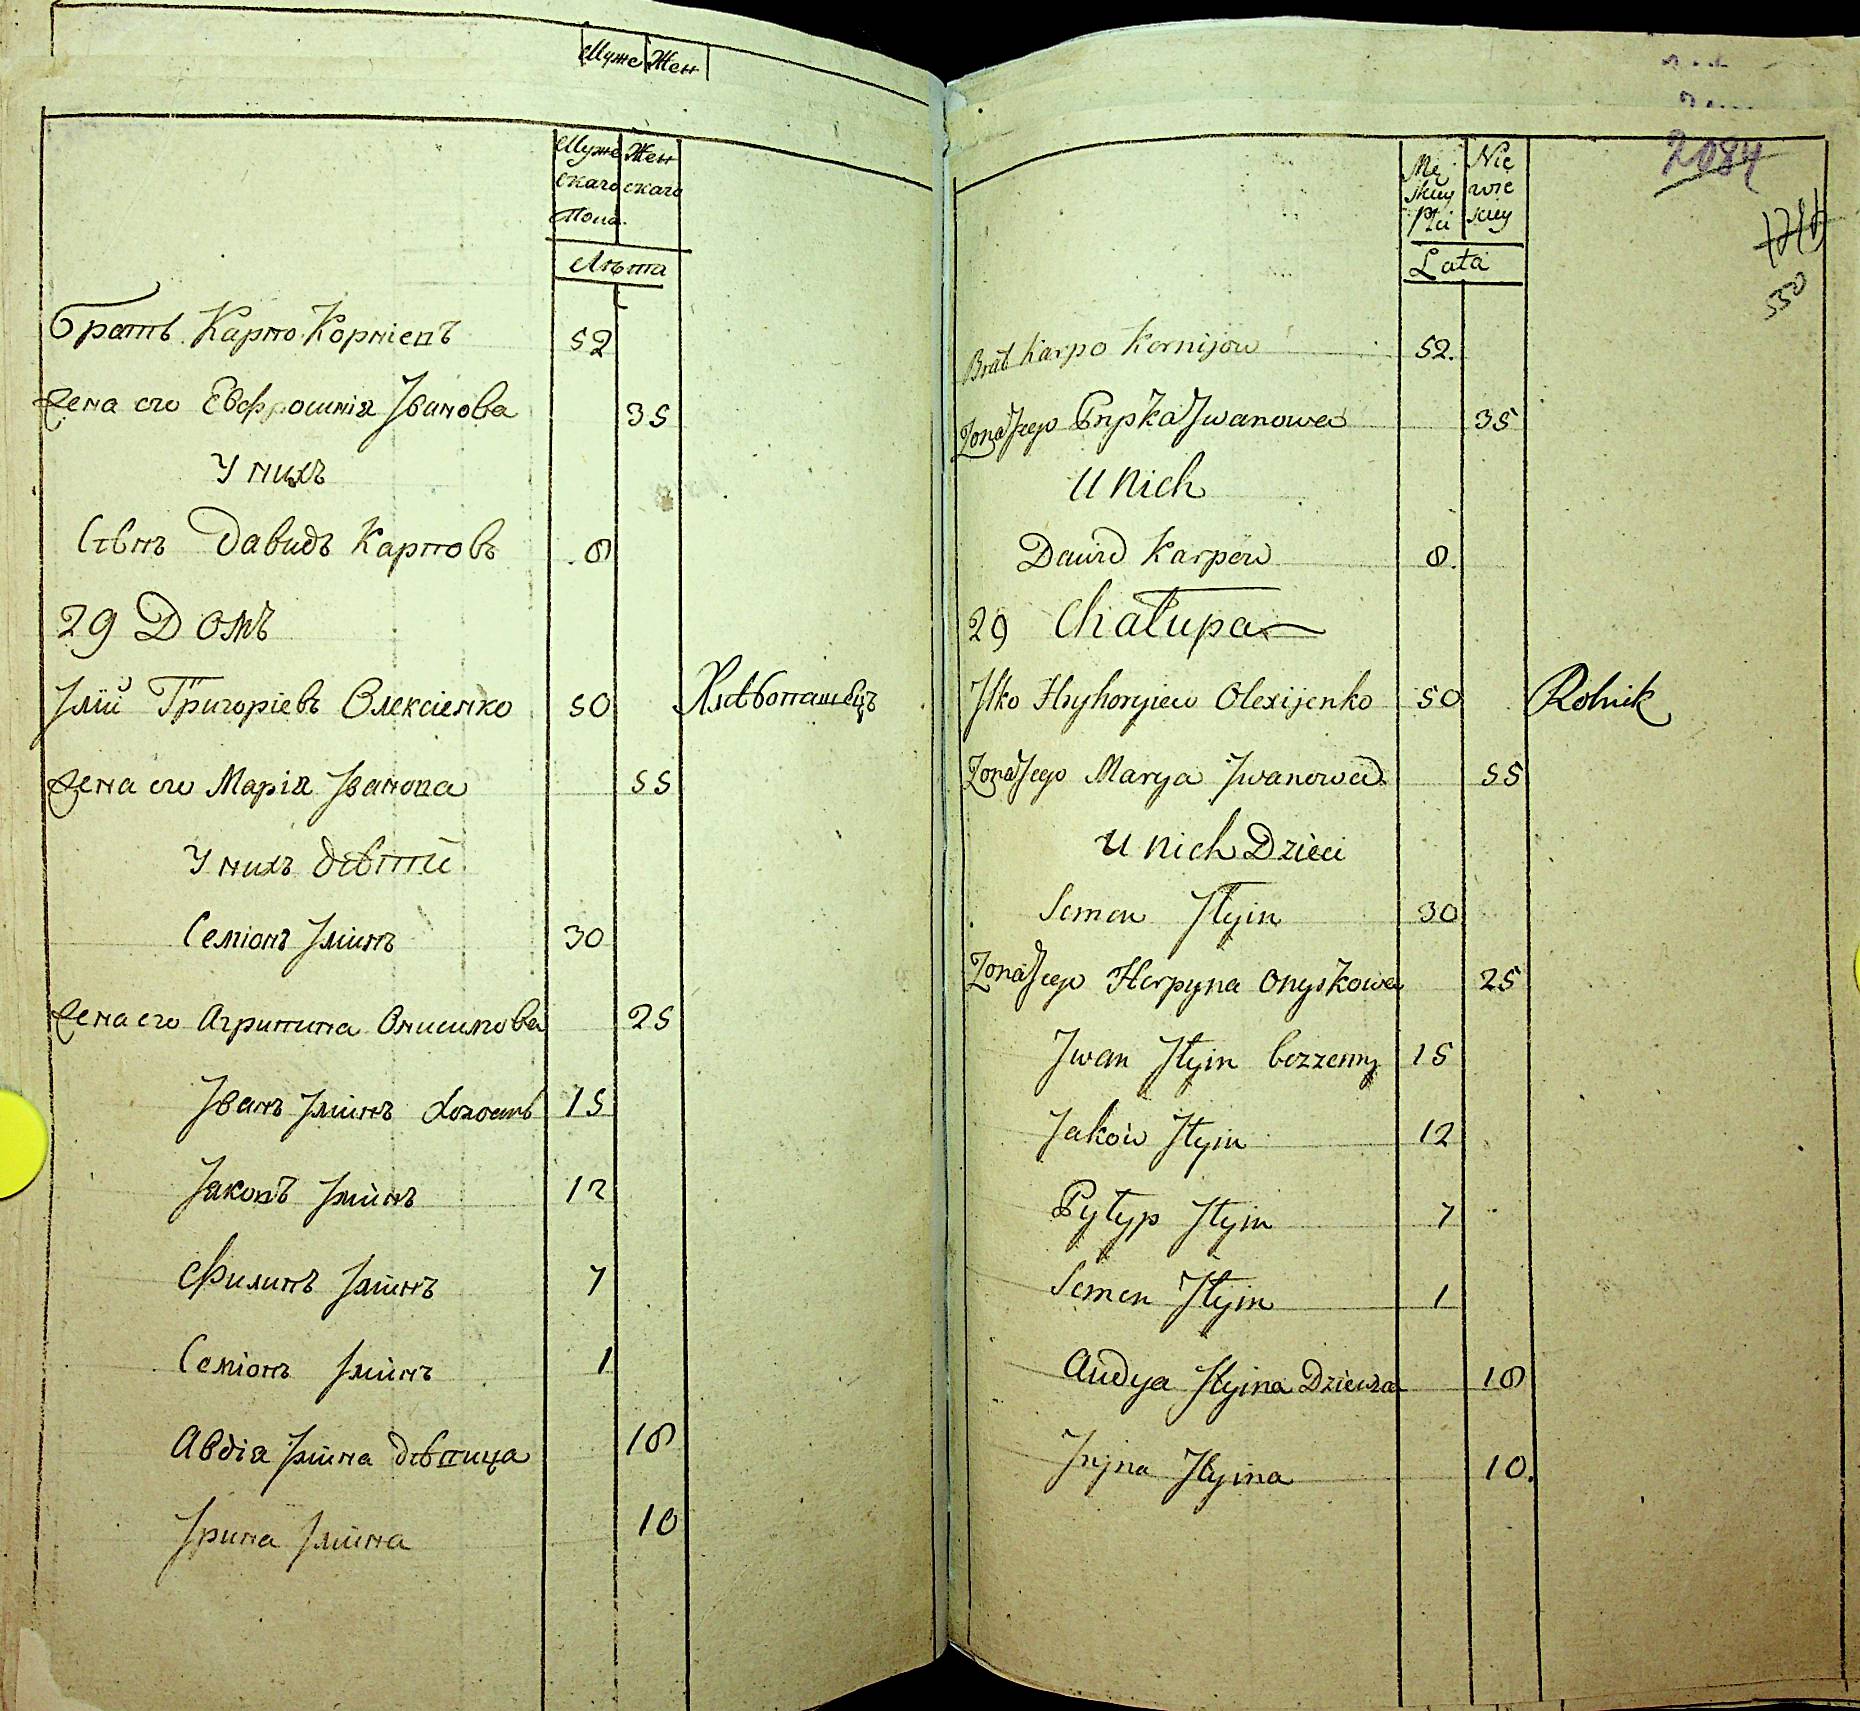 Муже Жен
Муже Жен
скаго скаго
Пола
Лѣта
братъ Карпо Корніевъ 52
Жена его Евфросинія Іванова 35
У нихъ
Сынъ Давидъ Карповъ 8
29 Домъ
Ілій Григоріевъ Олексіенко 50 Хлѣбопашецъ
Жена его Марія Іванова 55
У нихъ дѣти
Семіонъ Ілінъ 30
Жена его Агрипина Онисимова 25
Іванъ Ілінъ Холостъ 15
Іаковъ Ілінъ 12
Филипъ Ілінъ 7
Семіонъ Ілінъ 1
Авдія Іліина дѣвица 18
Ірина Іліина 10
2084
550
Mę Nie
skiey wie
Płci skiey
Lata
Brat Karpo Kornijow 52.
Zona Jego Pryśka Jwanowa 35
U Nich
Dawid Karpow 8.
29 Chałupa
Jlko Hryhoryiew Olexijenko 50 Rolnik
Zona Jego Marya Jwanowa 55
U nich Dzieci
Semen Jlyin 30
Zona Jego Horpyna Onyskowa 25
Jwan Jlyin bezzenny 15
Jakow Jlyin 12
Pyłyp Jlyin 7
Semen Jlyin 1
Audya Jlyina Dziewka 18
Jryna Jlyina 10.